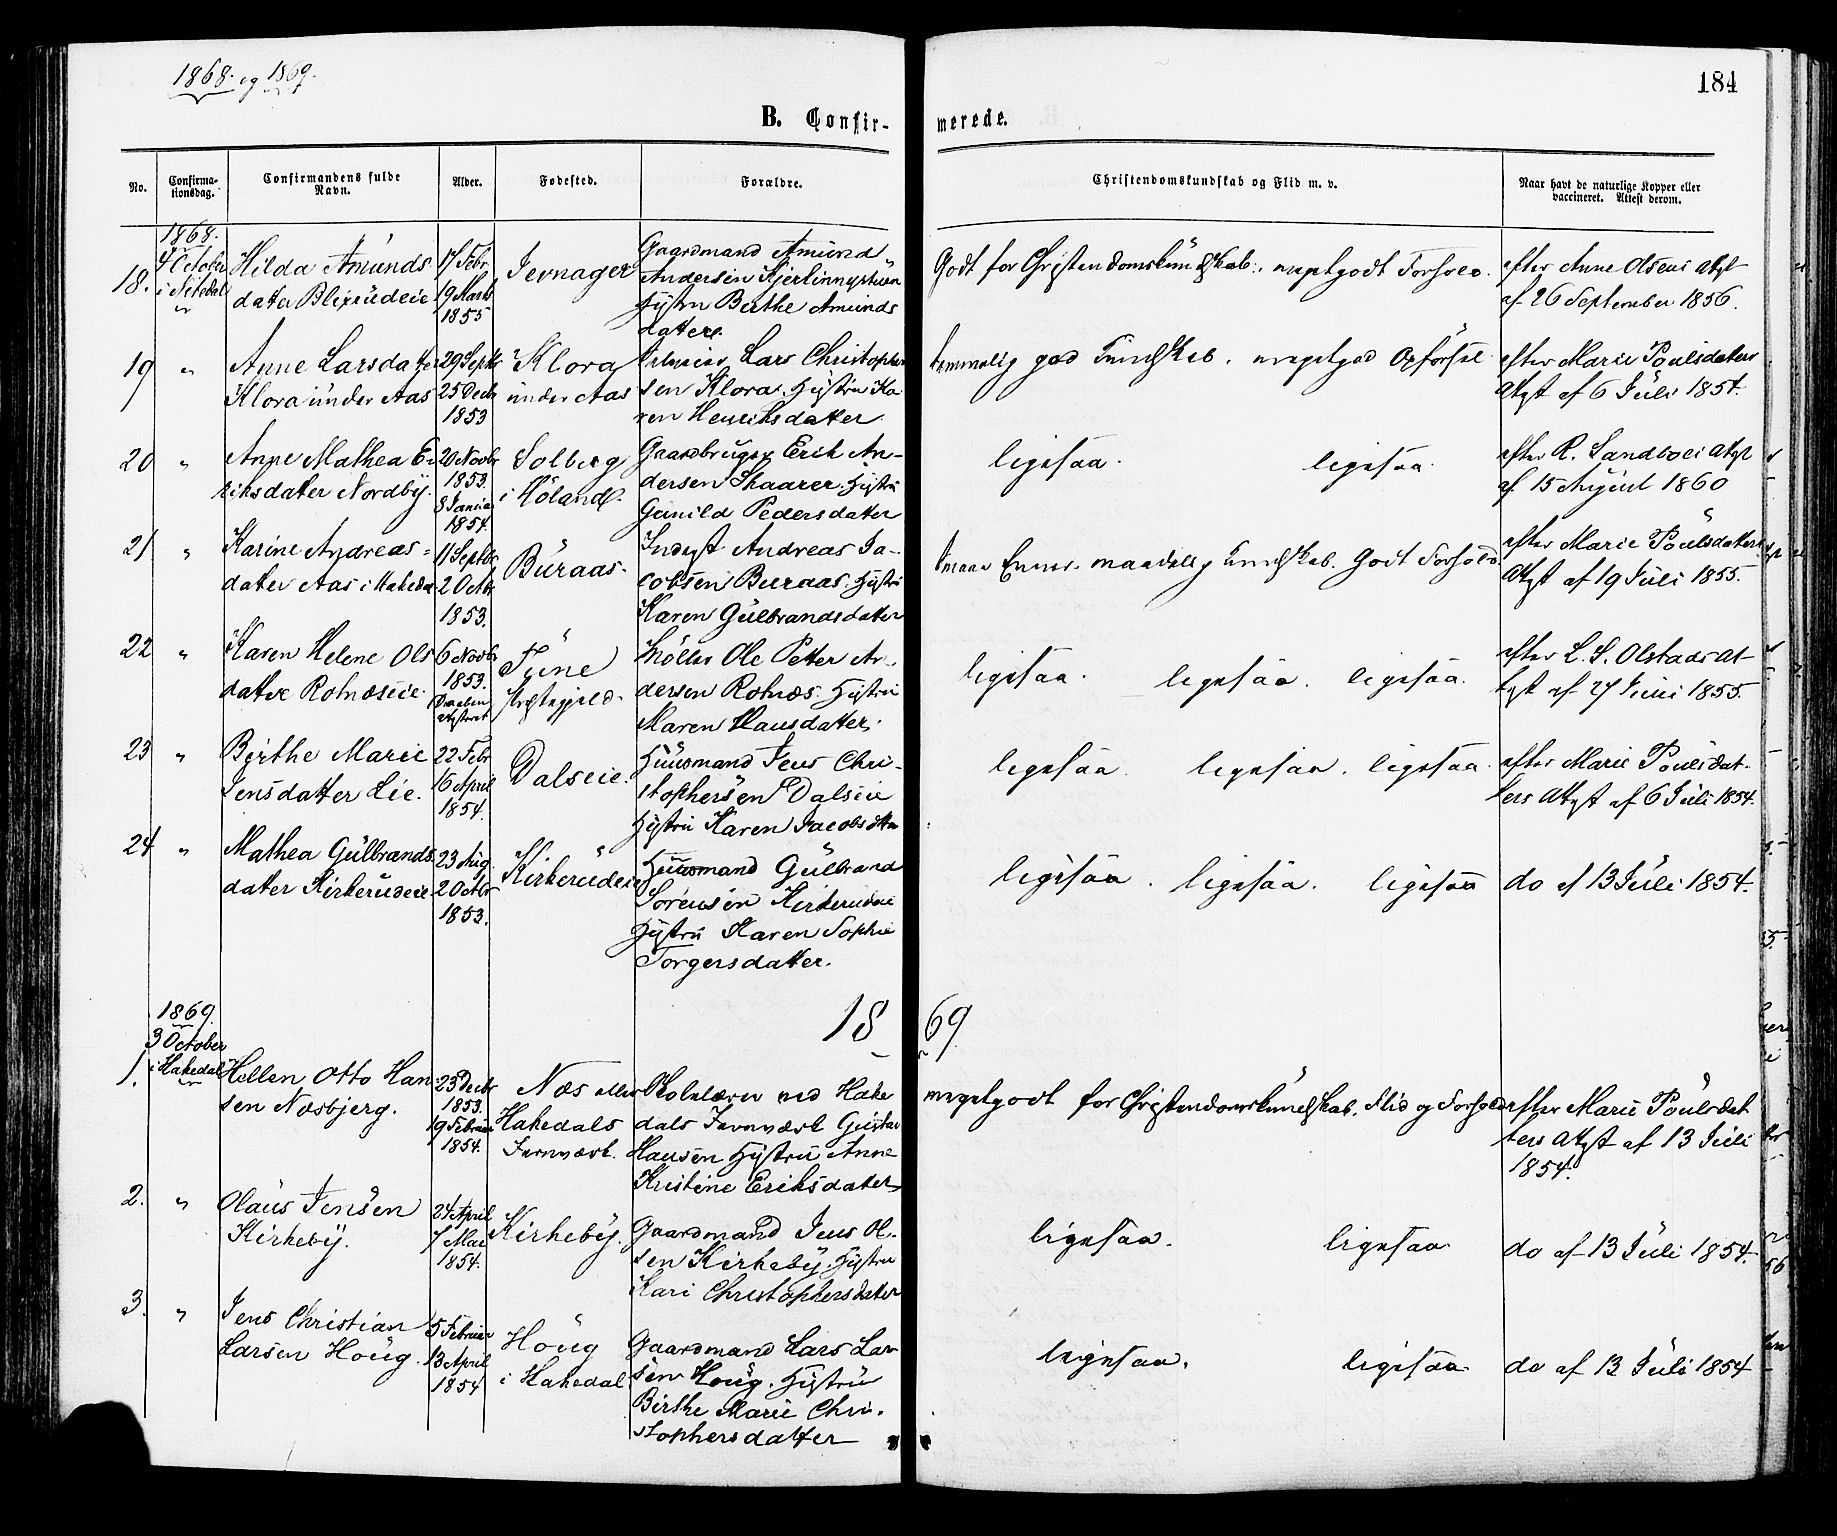 1868. og 1869.
184
B. Confir-
merede.
No.
Confirma-
tionsdag.
Confirmandens fulde
Navn.
Alder.
Fødested.
Forældre.
Christendomskundskab og Flid m. v.
Naar havt de naturlige Kopper eller
vaccineret. Attest derom.
1868.
18.
4 October
i Nitedal
Hilda Amunds
datter Blixrudeie
17 Febr
19 Marts
1855
Jevnager
Gaardmand Amund
Andersen
Hustru Berthe Amunds
datter.
Godt for Christendomskundskab. meget godt Forhold.
efter Anne Olsens Atst
af 26 September 1856.
19
"
Anne Larsdatter
Klora under Aas
29 Septbr
25 Decbr
1853
Klora
under Aas
Lars Christopher
sen Klora. Hustru Ka
ren Henriksdatter
temmelig god Kundskab. meget god Opførsel
efter Marie Poulsdatters
Atst af 6 Juli 1854.
20
"
Anne Mathea E
riksdatter Nordby.
20 Novbr
1853.
8 Januar
1854.
Solberg
i Høland.
Gaardbruger Erik An-
dersen Skaarer. Hustru
Gunild Pedersdatter
ligesaa. ligesaa.
efter R. Sandboei Atst
af 15 August 1860
21
"
Karine Andreas-
datter Aas i Hakedal
11 Septbr
2 Octbr
1853.
Buraas.
Inderst Andreas Ja-
cobsen Buraas. Hustru
Karen Gulbrandsdatter
maadelig Kundskab. Godt Forhold
efter Marie Poulsdatters
Atst af 19 Juli 1855.
22
"
Karen Helene Ols
datter Rotnæseie.
6 Novbr
1853.
Daaben
attesteret
Tune
Præstegjeld.
Møller Ole Petter An
dersen Rotnæs. Hustru
Maren Hansdatter.
ligesaa. ligesaa. ligesaa.
efter L. S. Olstads At-
test af 27 Juni 1855.
23
"
Berthe Marie
Jensdatter Lie.
22 Febr
16 April
1854.
Dalseie.
Huusmand Jens Chri-
stophersen Dalseie
Hustru Karen Jacobsdtter
ligesaa. ligesaa. ligesaa.
efter Marie Poulsdat-
ters Atst af 6 Juli 1854.
24
"
Mathea Gulbrands
datter Kirkerudeie
23 Aug.
2 Octbr
1853.
Kirkerudeie
Huusmand Gulbrand
Sørensen Kirkerudeie
Hustru Karen Sophie
Torgersdatter.
ligesaa. ligesaa. ligesaa
do af 13 Juli 1854.
1869
1869.
3 October
i Hakedal
1.
Hellen Otto Han-
sen Næsbjerg.
23 Decbr
1853.
19 Februar
1854.
Næs eller
Hakedals
Jernværk.
Skolelærer ved Hake
dals Jernværk Gustav
Hansen Hustru Anne
Kristine Eriksdatter
meget godt for Christendomskundskab. Flid og Forhold
efter Marie Poulsdat
ters Atst af 13 Juli
1854.
2.
"
Olaus Jensen
Kirkeby.
24 April
7 Mai
1854.
Kirkeby.
Gaardmand Jens Ol-
sen Kirkeby. Hustru
Kari Christophersdatter
ligesaa. ligesaa.
do af 13 Juli 1854.
3.
"
Jens Christian
Larsen Houg.
5 Februar
13 April
1854
Houg
i Hakedal
Gaardmand Lars Lar
sen Houg. Hustru
Birthe Marie Chri-
stophersdatter
ligesaa. ligesaa.
do af 13 Juli 1854